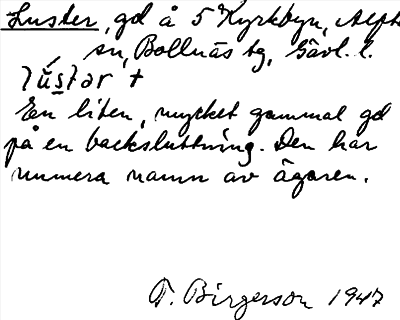 Luster, gd å 5 Kyrkbyn, Alfta
sn, Bollnäs tg, Gävl. l.
lústər +
En liten, mycket gammal gd
på en backsluttning. Den har
numera namn av ägaren.
T. Birgerson 1947